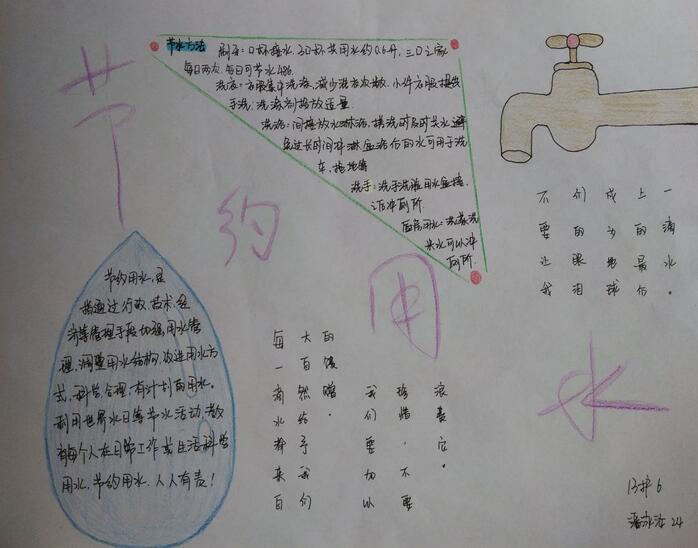 节约用水
节水方法 刷牙：口杯接水，3口杯共用水约0.6升，三口之家
每日两次，每日可节水486
洗衣：衣服集中洗涤，减少洗衣次数，小件衣服提倡
手洗，洗涤剂投放适量
洗浴：间接放水淋浴，搓洗时及时关水，避
免过长时间冲淋，盆浴后的水可用于洗
车，拖地等
洗手：洗手洗脸用水盆接，
之后冲厕所
厨房用水：洗菜洗
米水可以冲
厕所
不要让我
们的眼泪
成为地球
上的最后
一滴水。
节约用水，是
指通过行政、技术、经
济等管理手段加强用水管
理，调整用水结构，改进用水方
式，科学、合理、有计划的用水。
利用世界水日等节水活动，教
育每个人在日常工作或生活科学
用水，节约用水，人人有责！
每一滴水都来自
大自然给予我们
的馈赠。
我们要加以
珍惜，不要
浪费它。
13护6
24